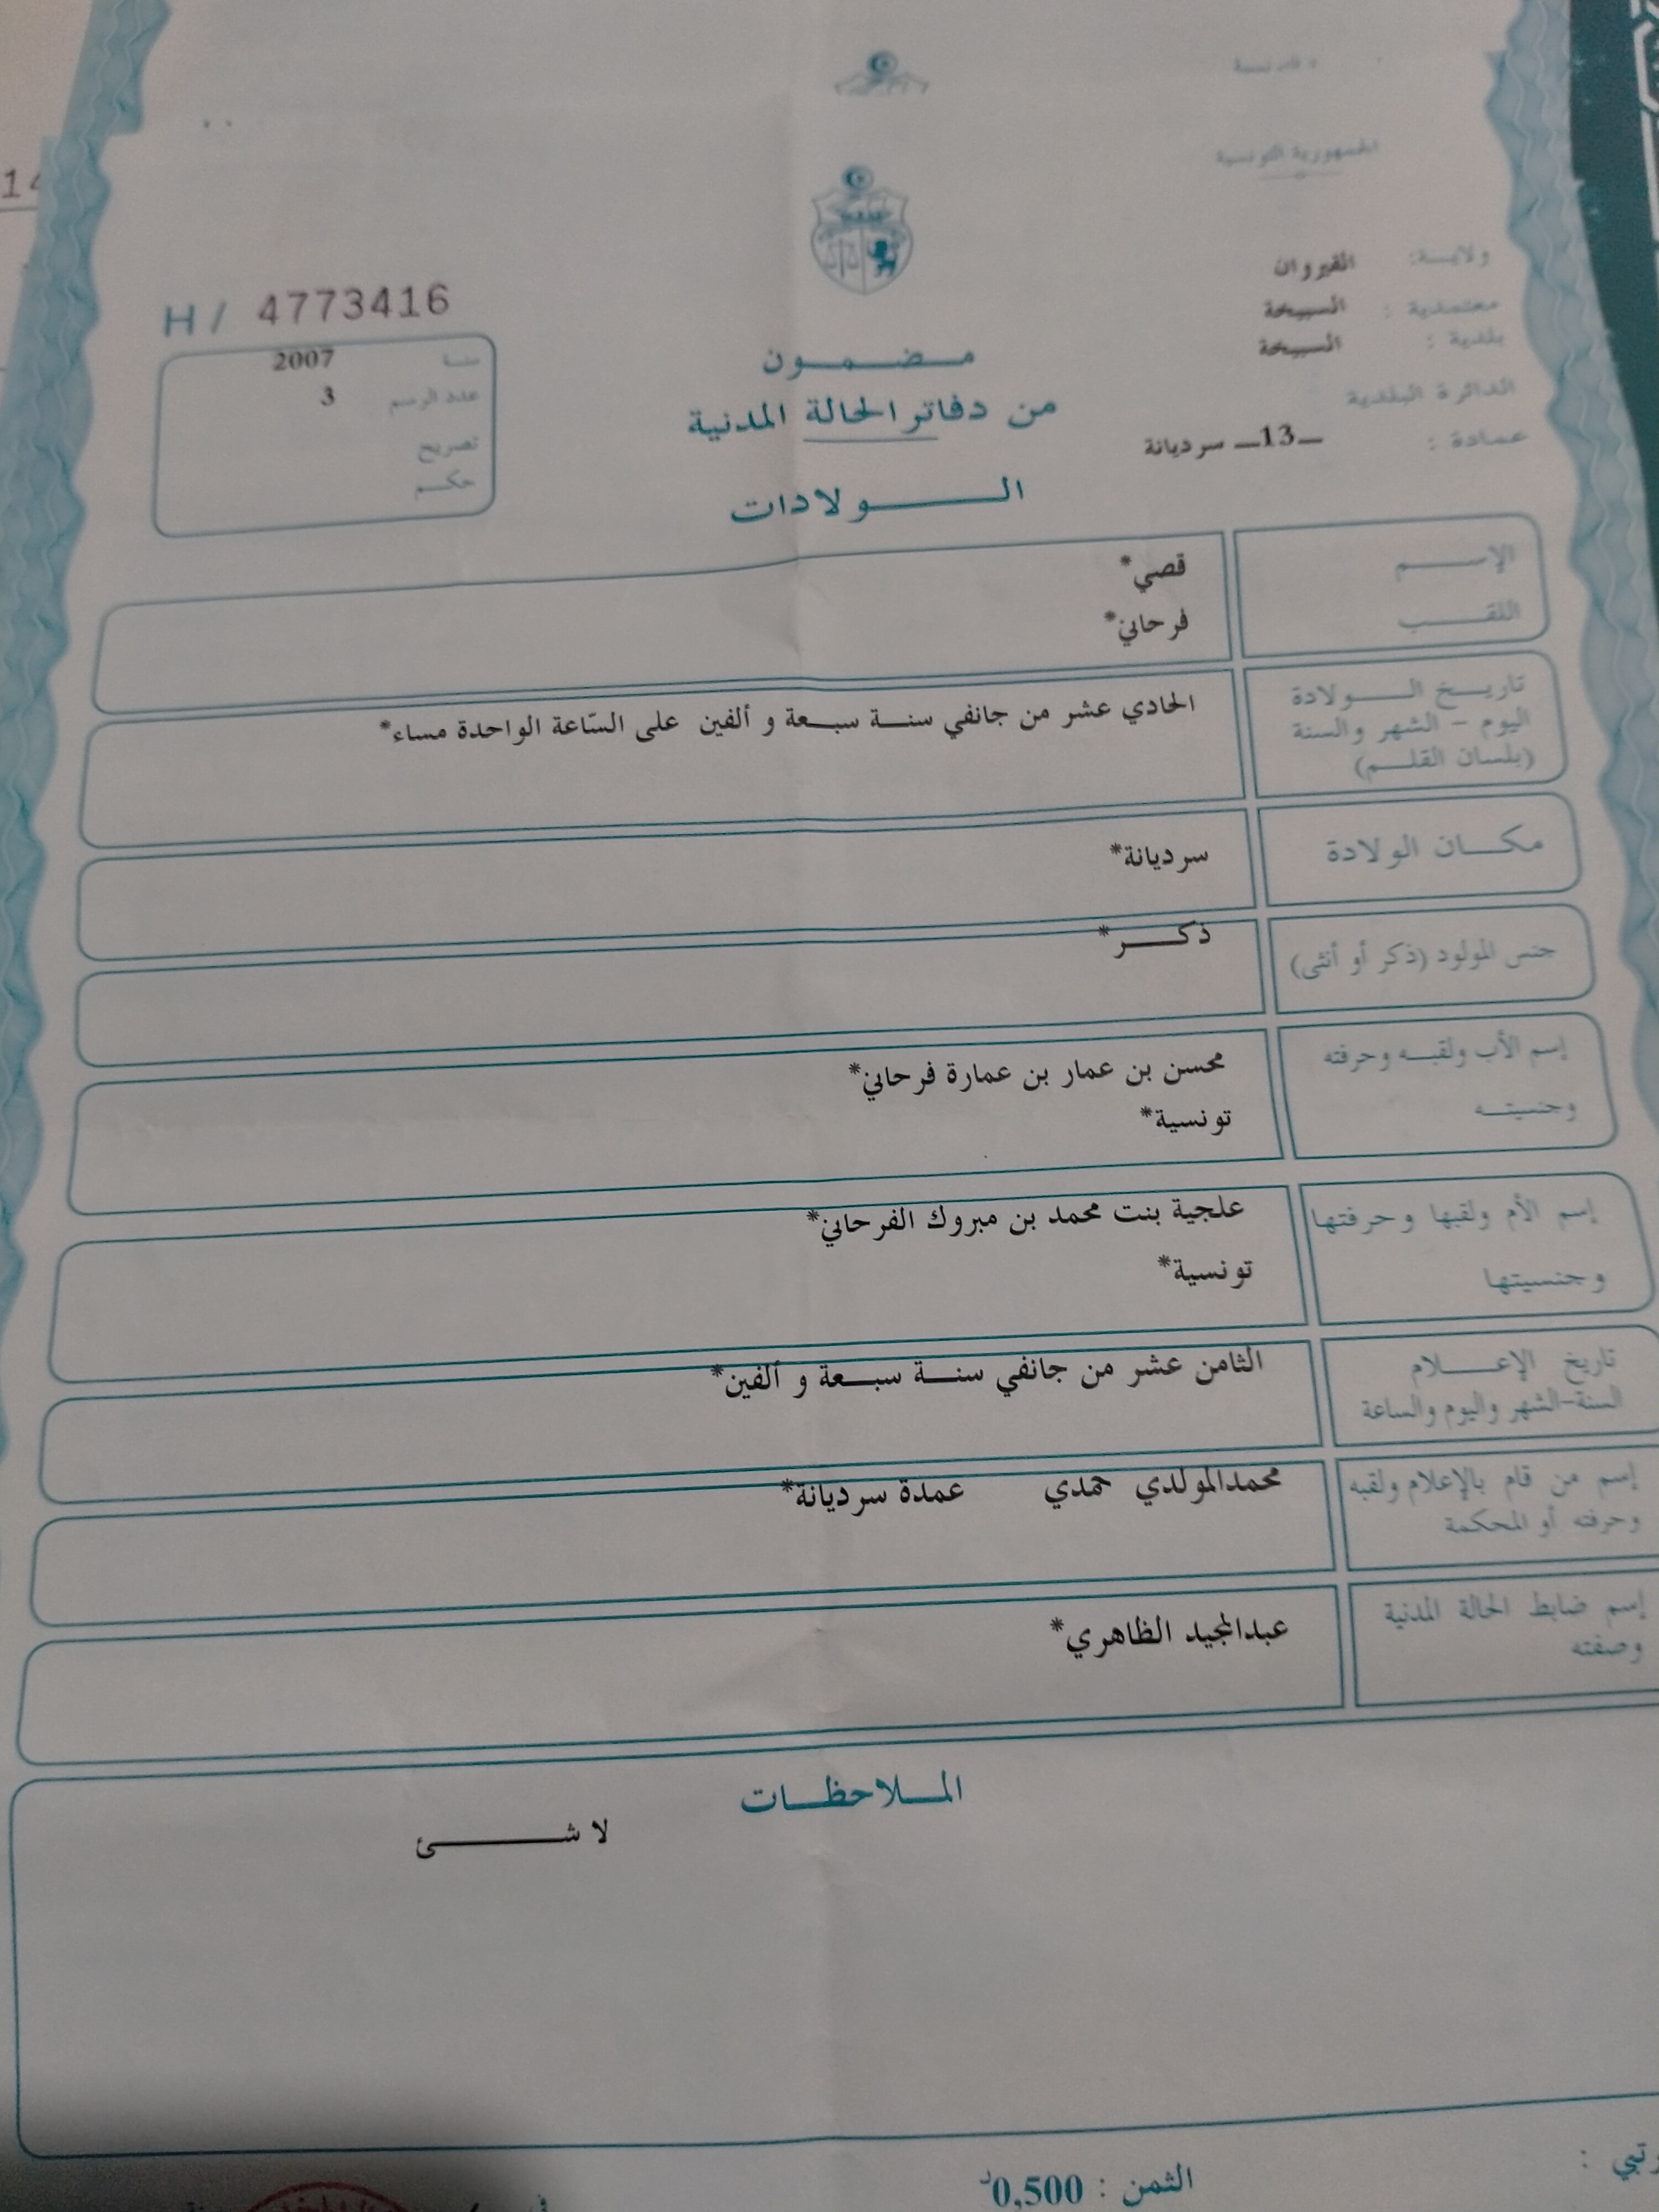 الجمهورية التونسية
ولايـة: القيروان
معتمدية : السبيخة
بلدية : السبيخة
الدائرة البلدية
عمادة : ــ13ــ سرديانة
مـضـمـون
من دفاتر الحالة المدنية
الـولادات
H / 4773416
سنـة 2007
عدد الرسم 3
تصريح
حكـم
الإسـم قصي*
اللقـب فرحاني*
تاريـخ الـولادة
اليوم - الشهر والسنة
(بلسان القلـم)
الحادي عشر من جانفي سنـة سبـعة و ألفين على السّاعة الواحدة مساء*
مكـان الولادة سرديانة*
جنس المولود (ذكر أو أنثى) ذكـر*
إسم الأب ولقبـه وحرفته محسن بن عمار بن عمارة فرحاني*
وجنسيتـه تونسية*
إسم الأم ولقبها وحرفتها علجية بنت محمد بن مبروك الفرحاني*
وجنسيتها تونسية*
تاريخ الإعـلام الثامن عشر من جانفي سنـة سبـعة و ألفين*
السنة-الشهر واليوم والساعة
إسم من قام بالإعلام ولقبه محمدالمولدي حمدي عمدة سرديانة*
وحرفته أو المحكمة
إسم ضابط الحالة المدنية عبدالمجيد الظاهري*
وصفته
المـلاحظـات
لا شـئ
الثمن : 0,500د
في